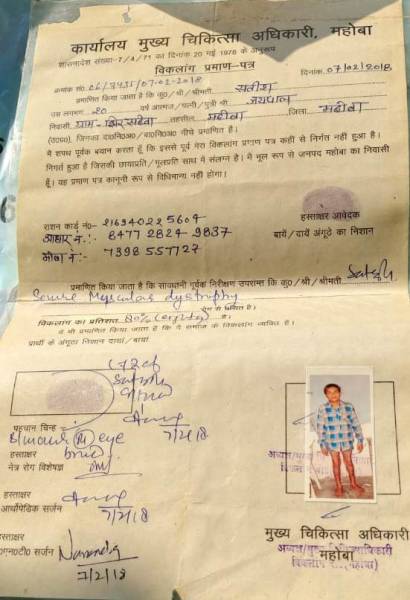 कार्यालय मुख्य चिकित्सा अधिकारी, महोबा
शासनादेश संख्या-7/4/71 का दिनांक 20 मई 1978 के अनुरूप
विकलांग प्रमाण-पत्र
क्रमांक सं० दिनांक 07/02/2018
प्रमाणित किया जाता है कि कु०/श्री/श्रीमती सतीश
उम्र लगभग 20 वर्ष आत्मज/पत्नी/पुत्री श्री जयपाल
निवासी ग्राम- तहसील महोबा जिला महोबा
(उ०प्र०), जिनका दा०नि०अ०/बा०नि०अं० नीचे प्रमाणित है।
मैं शपथ पूर्वक बयान करता हूँ कि इससे पूर्व मेरा विकलांग प्रमाण पत्र कहीं से निर्गत नहीं हुआ है।
निर्गत हुआ है जिसकी छायाप्रति/मूलप्रति साथ में संलग्न है। मैं मूल रूप से जनपद महोबा का निवासी
हूँ। यह प्रमाण पत्र कानूनी रूप से विधिमान्य नहीं होगा।
राशन कार्ड नं०- 216340225604
हस्ताक्षर आवेदक
आधार नं:- 8477 2824 9837
बायें/दायें अंगूठे का निशान
मोबा नं:- 7398557727
प्रमाणित किया जाता है कि सावधानी पूर्वक निरीक्षण उपरान्त कि कु०/श्री/श्रीमती Satish
Severe Muscular dystrophy
रोग से ग्रसित है।
विकलांग का प्रतिशत 80% (eighty) है।
ये भी प्रमाणित किया जाता है कि ये समाज के विकलांग व्यक्ति है।
प्रार्थी के अंगूठा निशान दायां/बायां
पहचान चिन्ह
7/2/18
eye
हस्ताक्षर
नेत्र रोग विशेषज्ञ
हस्ताक्षर
आर्थोपेडिक सर्जन
7/2/18
हस्ताक्षर
सर्जन Narendra
7/2/18
मुख्य चिकित्सा अधिकारी
महोबा